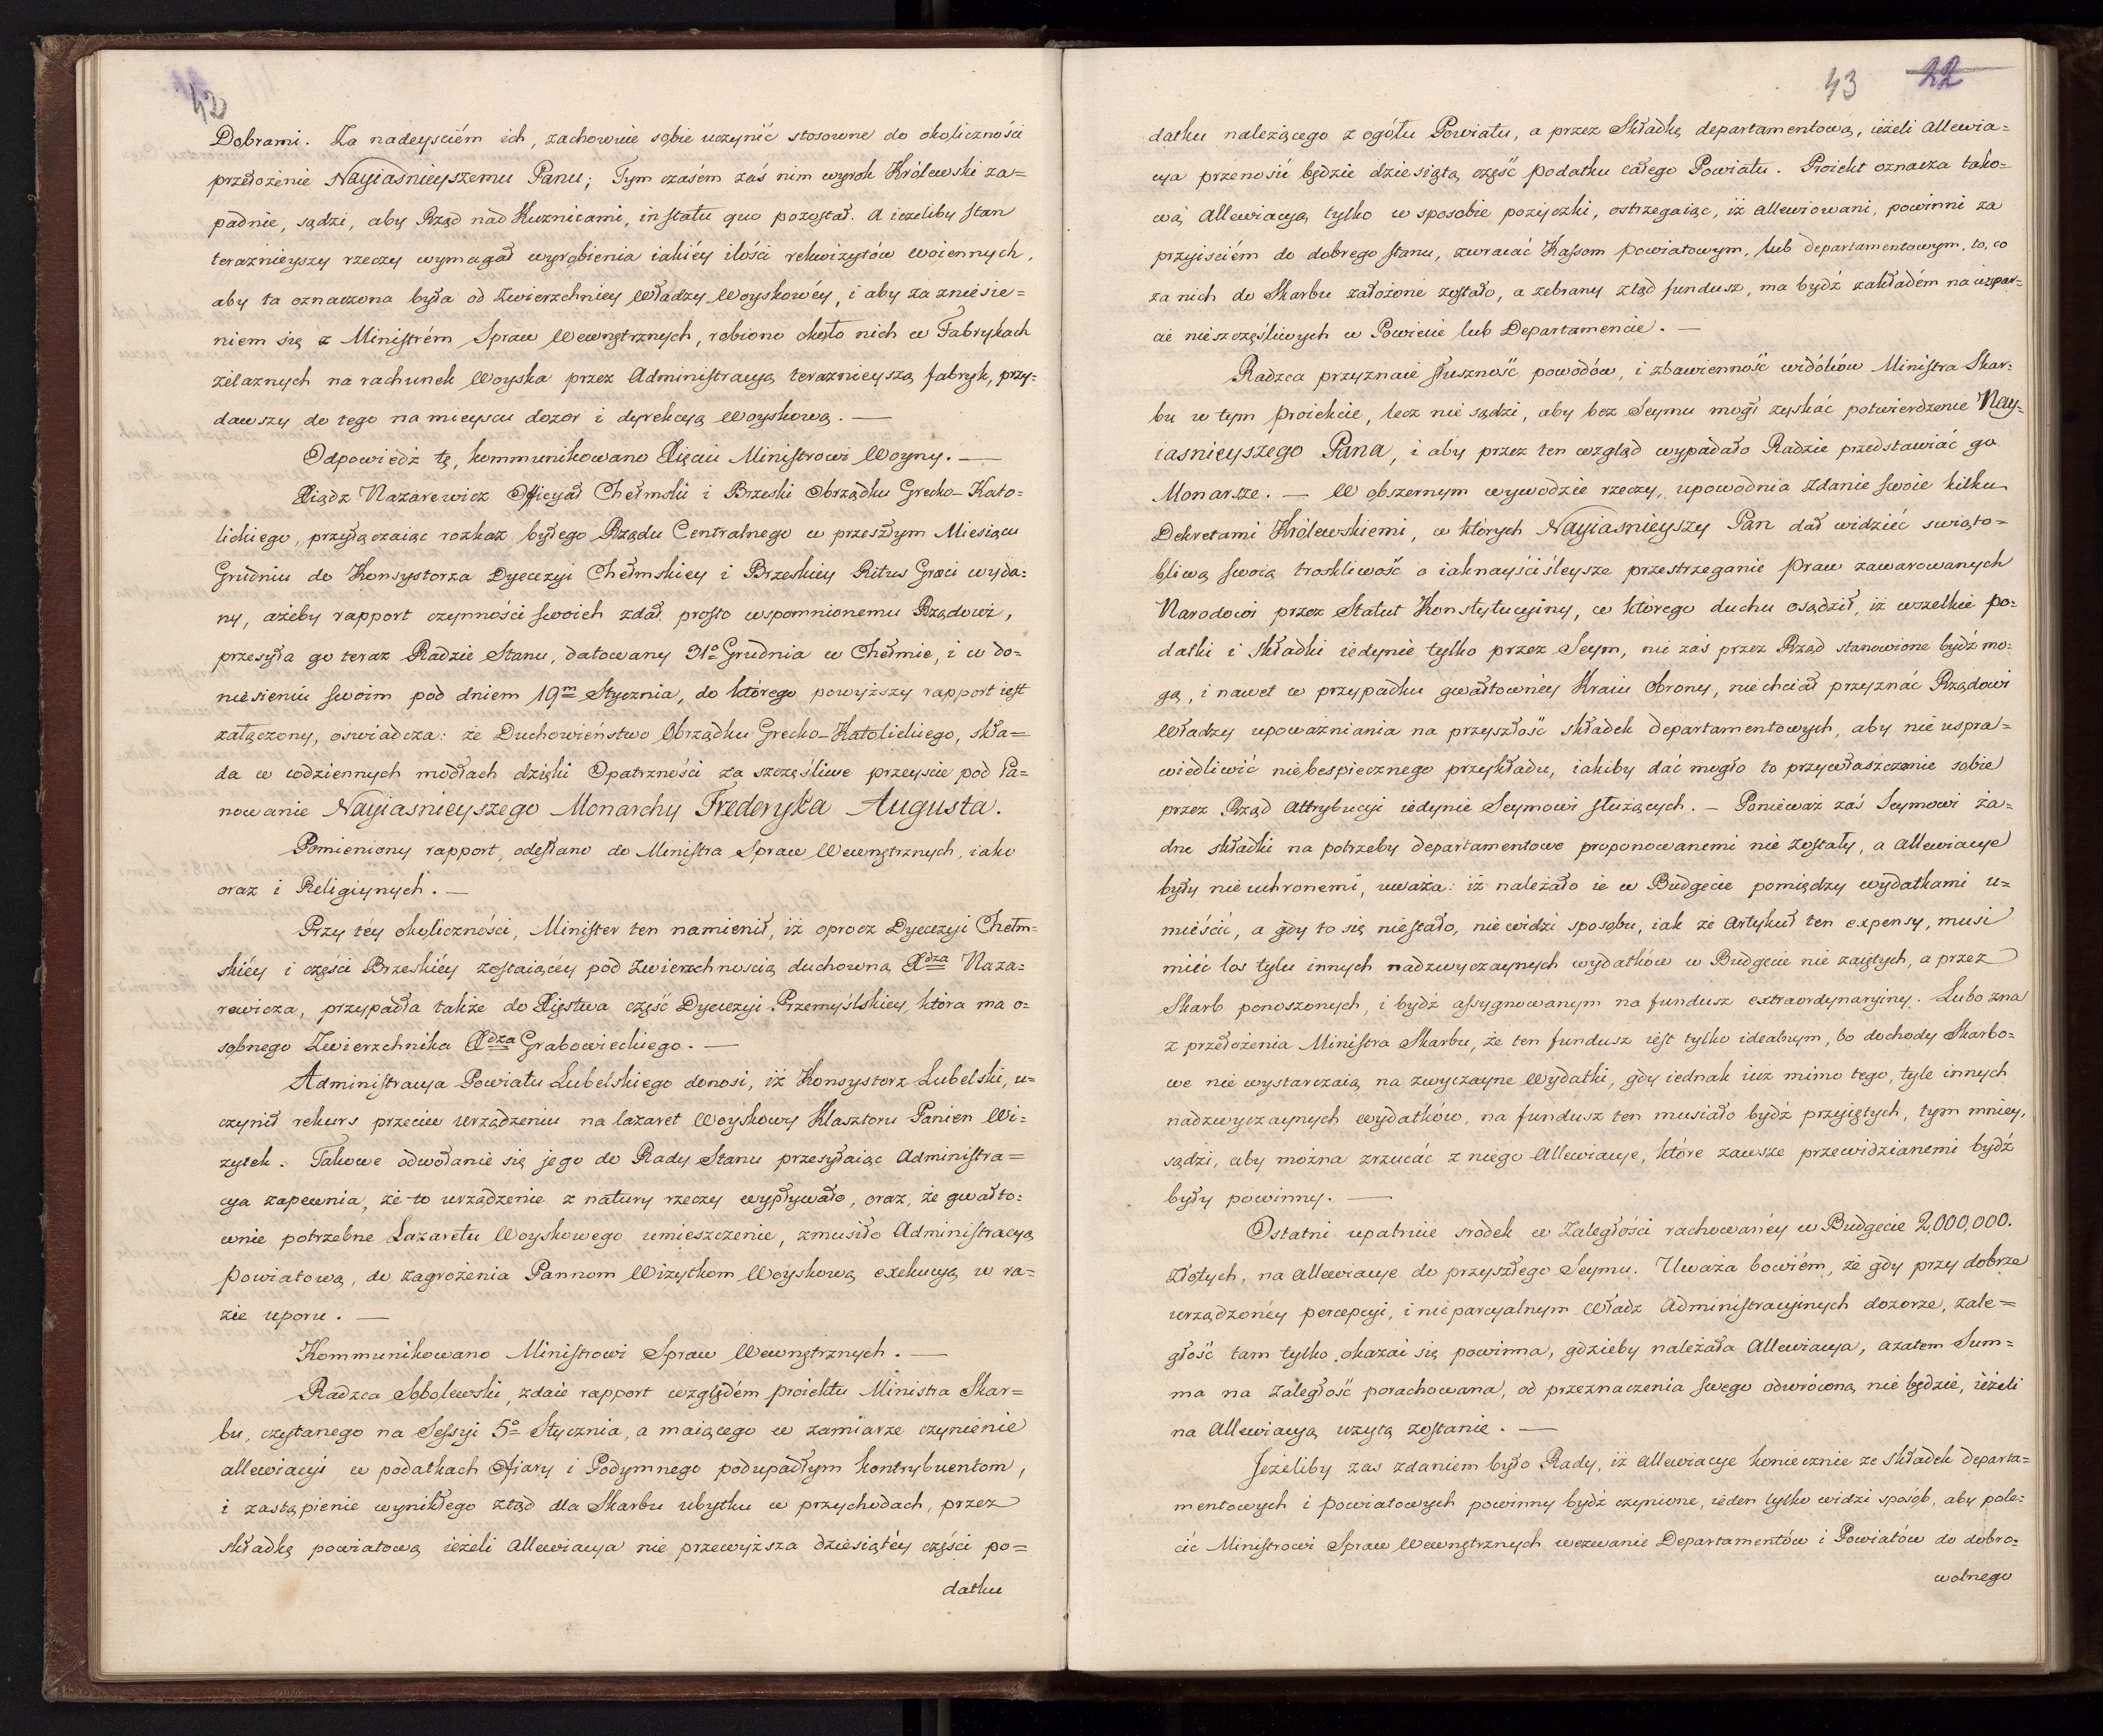 42
Dobrami. Za nadeyściém ich, zachowuie sobie uczynić stosowne do okoliczności
przełożenie Nayiaśnieyszemu Panu; Tym czasém zaś nim wyrok Królewski za=
padnie, sądzi, aby Rząd nad Kuznicami, in statu quo pozostał. A ieżeliby stan
teraznieyszy rzeczy wymagał wyrobienia iakiéy ilości rekwizytów woiennych,
aby ta oznaczona była od Zwierzchniey Władzy Woyskowéy, i aby za zniesie=
niem się z Ministrém Spraw Wewnętrznych, robiono około nich w Fabrykach
żelaznych na rachunek Woyska przez Administracyą teraznieyszą fabryk, przy=
dawszy do tego na mieyscu dozor i dyrekcyą Woyskową. —
Odpowiédź tę, kommunikowano Xięciu Ministrowi Woyny. —
Xiądz Nazarewicz Officyał Chełmski i Brzeski Obrządku Grecko-Kato=
lickiego, przyłączaiąc rozkaz byłego Rządu Centralnego w przeszłym Miesiącu
Grudniu do Konsystorza Dyecezyi Chełmskiey i Brzeskiey Ritus Graeci wyda=
ny, ażeby rapport czynności swoich zdał prosto wspomnionemu Rządowi,
przesyła go teraz Radzie Stanu, datowany 31º Grudnia w Chełmie, i w do=
niesieniu swoim pod dniem 19m Stycznia, do którego powyższy rapport iest
załączony, oswiadcza: że Duchowieństwo Obrządku Grecko-Katolickiego, skła=
da w codziennych modłach dzięki Opatrzności za szczęśliwe przeyscie pod Pa=
nowanie Nayiaśnieyszego Monarchy Frederyka Augusta.
Pomieniony rapport, odesłano do Ministra Spraw Wewnętrznych, iako
oraz i Religiynych. —
Przy téy okoliczności, Minister ten namienił, iż oprocz Dyecezyi Chełm=
skiéy i części Brzeskiéy zostaiącéy pod Zwierzchnoscią duchowną Xdza Naza=
rewicza, przypadła także do Xięstwa część Dyecezyi Przemyślskiey, która ma o=
sobnego Zwierzchnika Xdza Grabowieckiego. —
Administracya Powiatu Lubelskiego donosi, iż Konsystorz Lubelski, u=
czynił rekurs przeciw urządzeniu na lazaret Woyskowy Klasztoru Panien Wi=
zytek. Takowe odwołanie się jego do Rady Stanu przesyłaiąc Administra=
cya zapewnia, że to urządzenie z natury rzeczy wypływało, oraz, że gwałto=
wnie potrzebne Lazaretu Woyskowego umieszczenie, zmusiło Administracyą
Powiatową, do zagrożenia Pannom Wizytkom Woyskową exekucyą w ra=
zie uporu. —
Kommunikowano Ministrowi Spraw Wewnętrznych. —
Radzca Sobolewski, zdaie rapport względém proiektu Ministra Skar=
bu, czytanego na Sessyi 5º Stycznia, a maiącego w zamiarze czynienie
allewiacyi w podatkach Ofiary i Podymnego podupadłym kontrybuentom,
i zastąpienie wynikłego ztąd dla Skarbu ubytku w przychodach, przez
składkę powiatową ieżeli Allewiacya nie przewyższa dziesiątéy części po=
datku
43 22
datku należącego z ogółu Powiatu, a przez Składkę departamentową, ieżeli Allewia=
cya przenosić będzie dziesiątą część podatku całego Powiatu. Proiekt oznacza tako=
wą Allewiacyą tylko w sposobie pożyczki, ostrzegaiąc, iż allewiowani, powinni za
przyisciém do dobrego stanu, zwracać Kassom Powiatowym, lub Departamentowym, to, co
za nich do Skarbu założone zostało, a zebrany ztąd fundusz, ma bydź zakładém na wspar=
cie nieszczęśliwych w Powiecie lub Departamencie. —
Radzca przyznaie słuszność powodów, i zbawienność widoków Ministra Skar=
bu w tym proiekcie, lecz nie sądzi, aby bez Seymu mógł zyskać potwierdzenie Nay=
iasnieyszego Pana, i aby przez ten wzgląd wypadało Radzie przedstawiać go
Monarsze. — W obszernym wywodzie rzeczy, upowodnia zdanie swoie kilku
Dekretami Królewskiemi, w których Nayiaśnieyszy Pan dał widzieć swiąto=
bliwą swoią troskliwość o iaknayściśleysze przestrzeganie praw zawarowanych
Narodowi przez Statut Konstytucyiny, w którego duchu osądził, iż wszelkie po=
datki i składki iedynie tylko przez Seym, nie zaś przez Rząd stanowione bydź mo=
gą, i nawet w przypadku gwałtownéy Kraiu Obrony, nie chciał przyznać Rządowi
Władzy upoważniania na przyszłość składek Departamentowych, aby nie uspra=
wiedliwić niebespiecznego przykładu, iakiby dać mogło to przywłaszczenie sobie
przez Rząd Attrybucyi iedynie Seymowi służących. — Ponieważ zaś Seymowi ża=
dne składki na potrzeby departamentowe proponowanemi nie zostały, a Allewiacye
były nieuchronemi, uważa: iż należało ie w Budgecie pomiędzy wydatkami u=
mieścić, a gdy to się niestało, nie widzi sposobu, iak że Artykuł ten expensy, musi
mieć los tylu innych nadzwyczaynych wydatków w Budgecie nie zaiętych, a przez
Skarb ponoszonych, i bydź assygnowanym na fundusz extraordynaryiny. Lubo zna
z przełożenia Ministra Skarbu, że ten fundusz iest tylko idealnym, bo dochody Skarbo=
we nie wystarczaią na zwyczayne Wydatki, gdy iednak iuż mimo tego, tyle innych
nadzwyczaynych wydatków, na fundusz ten musiało bydź przyiętych, tym mniey,
sądzi, aby można zrzucać z niego Allewiacye, które zawsze przewidzianemi bydź
były powinny. —
Ostatni upatruie srodek w Zaległości rachowanéy w Budgecie 2,000,000.
Złotych, na Allewiacye do przyszłego Seymu. Uważa bowiém, że gdy przy dobrze
urządzonéy percepcyi, i nieparcyalnym Władz Administracyinych dozorze, zale=
głość tam tylko okazać się powinna, gdzieby należała Allewiacya, a zatem Sum=
ma na Zaległość porachowana, od przeznaczenia swego odwróconą nie będzie, ieżeli
na Allewiacyą użytą zostanie. —
Jeżeliby zas zdaniem było Rady, iż Allewiacye koniecznie ze składek Departa=
mentowych i Powiatowych powinny bydź czynione, ieden tylko widzi sposób, aby pole=
cić Ministrowi Spraw Wewnętrznych wezwanie Departamentów i Powiatów do dobro=
wolnego